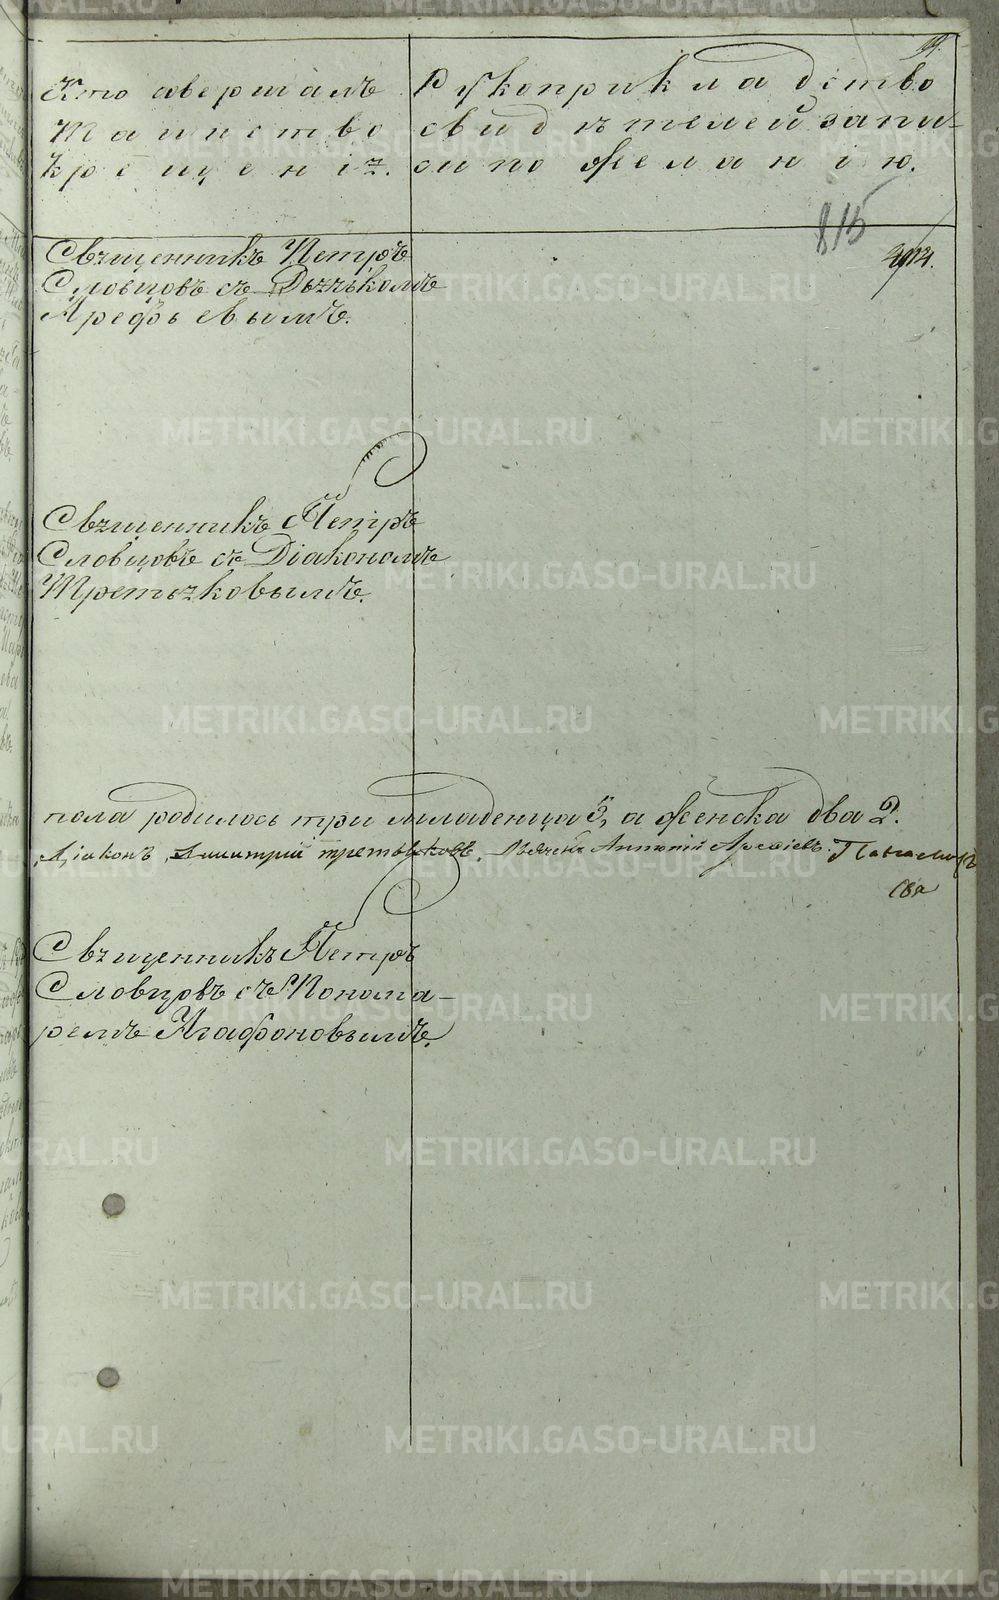 Кто совершалъ
Таинство
Крещенія.
Рукоприкладство
свидѣтелей запи-
си по желанію.
815
Священникъ Петръ
Словцовъ съ Дьячькомъ
Арефьевымъ.
Священникъ Петръ
Словцовъ съ Діакономъ
Третьяковымъ.
пола родилось три младенца 3, а женска два 2.
Діаконъ Димитрій Третьяковъ. Дьячекъ Антоній Арефьевъ.
Священникъ Петръ
Словцовъ съ Понома-
ремъ Агафоновымъ.
METRIKI.GASO-URAL.RU